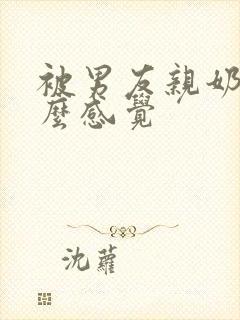 被男友親奶
麼感覺
沈蘿